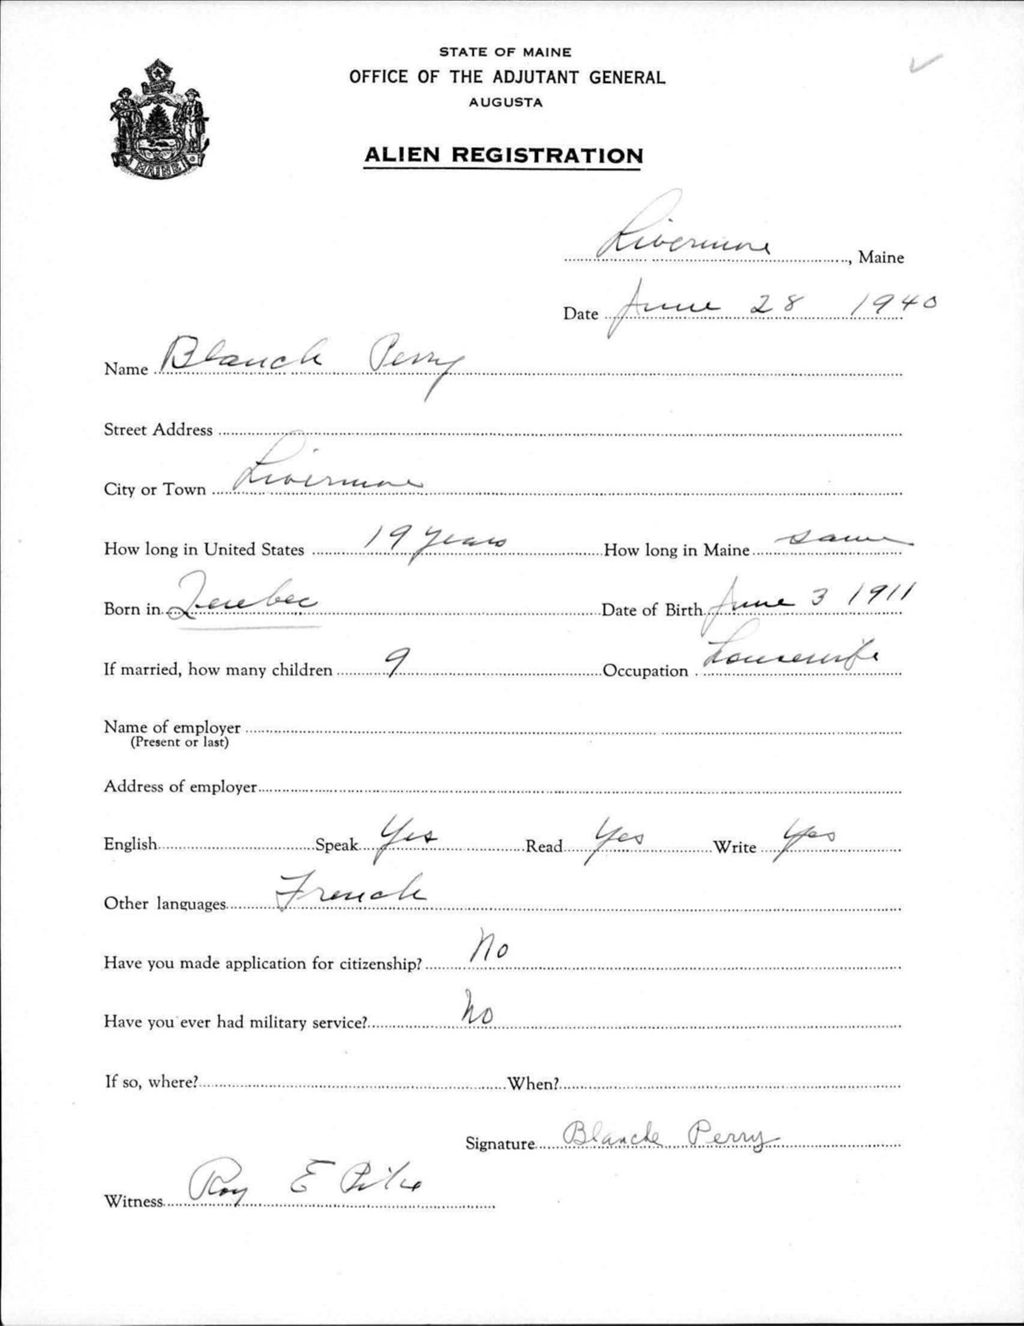 STATE OF MAINE
OFFICE OF THE ADJUTANT GENERAL
AUGUSTA
ALIEN REGISTRATION
MAINE
Livermore, Maine
Date June 28 1940
Name Blanch Perry
Street Address
City or Town Livermore
How long in United States 19 years How long in Maine same
Born in Quebec Date of Birth June 3 1911
If married, how many children 9 Occupation housewife
Name of employer
(Present or last)
Address of employer
English Speak Yes Read Yes Write Yes
Other languages French
Have you made application for citizenship? No
Have you ever had military service? No
If so, where? When?
Signature Blanche Perry
Witness Roy E Pike